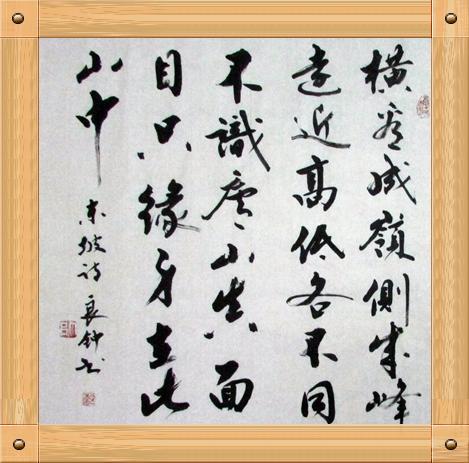 横看成嶺側成峰
遠近高低各不同
不識庐山真面
目只緣身在此
山中
東坡诗 良钟书